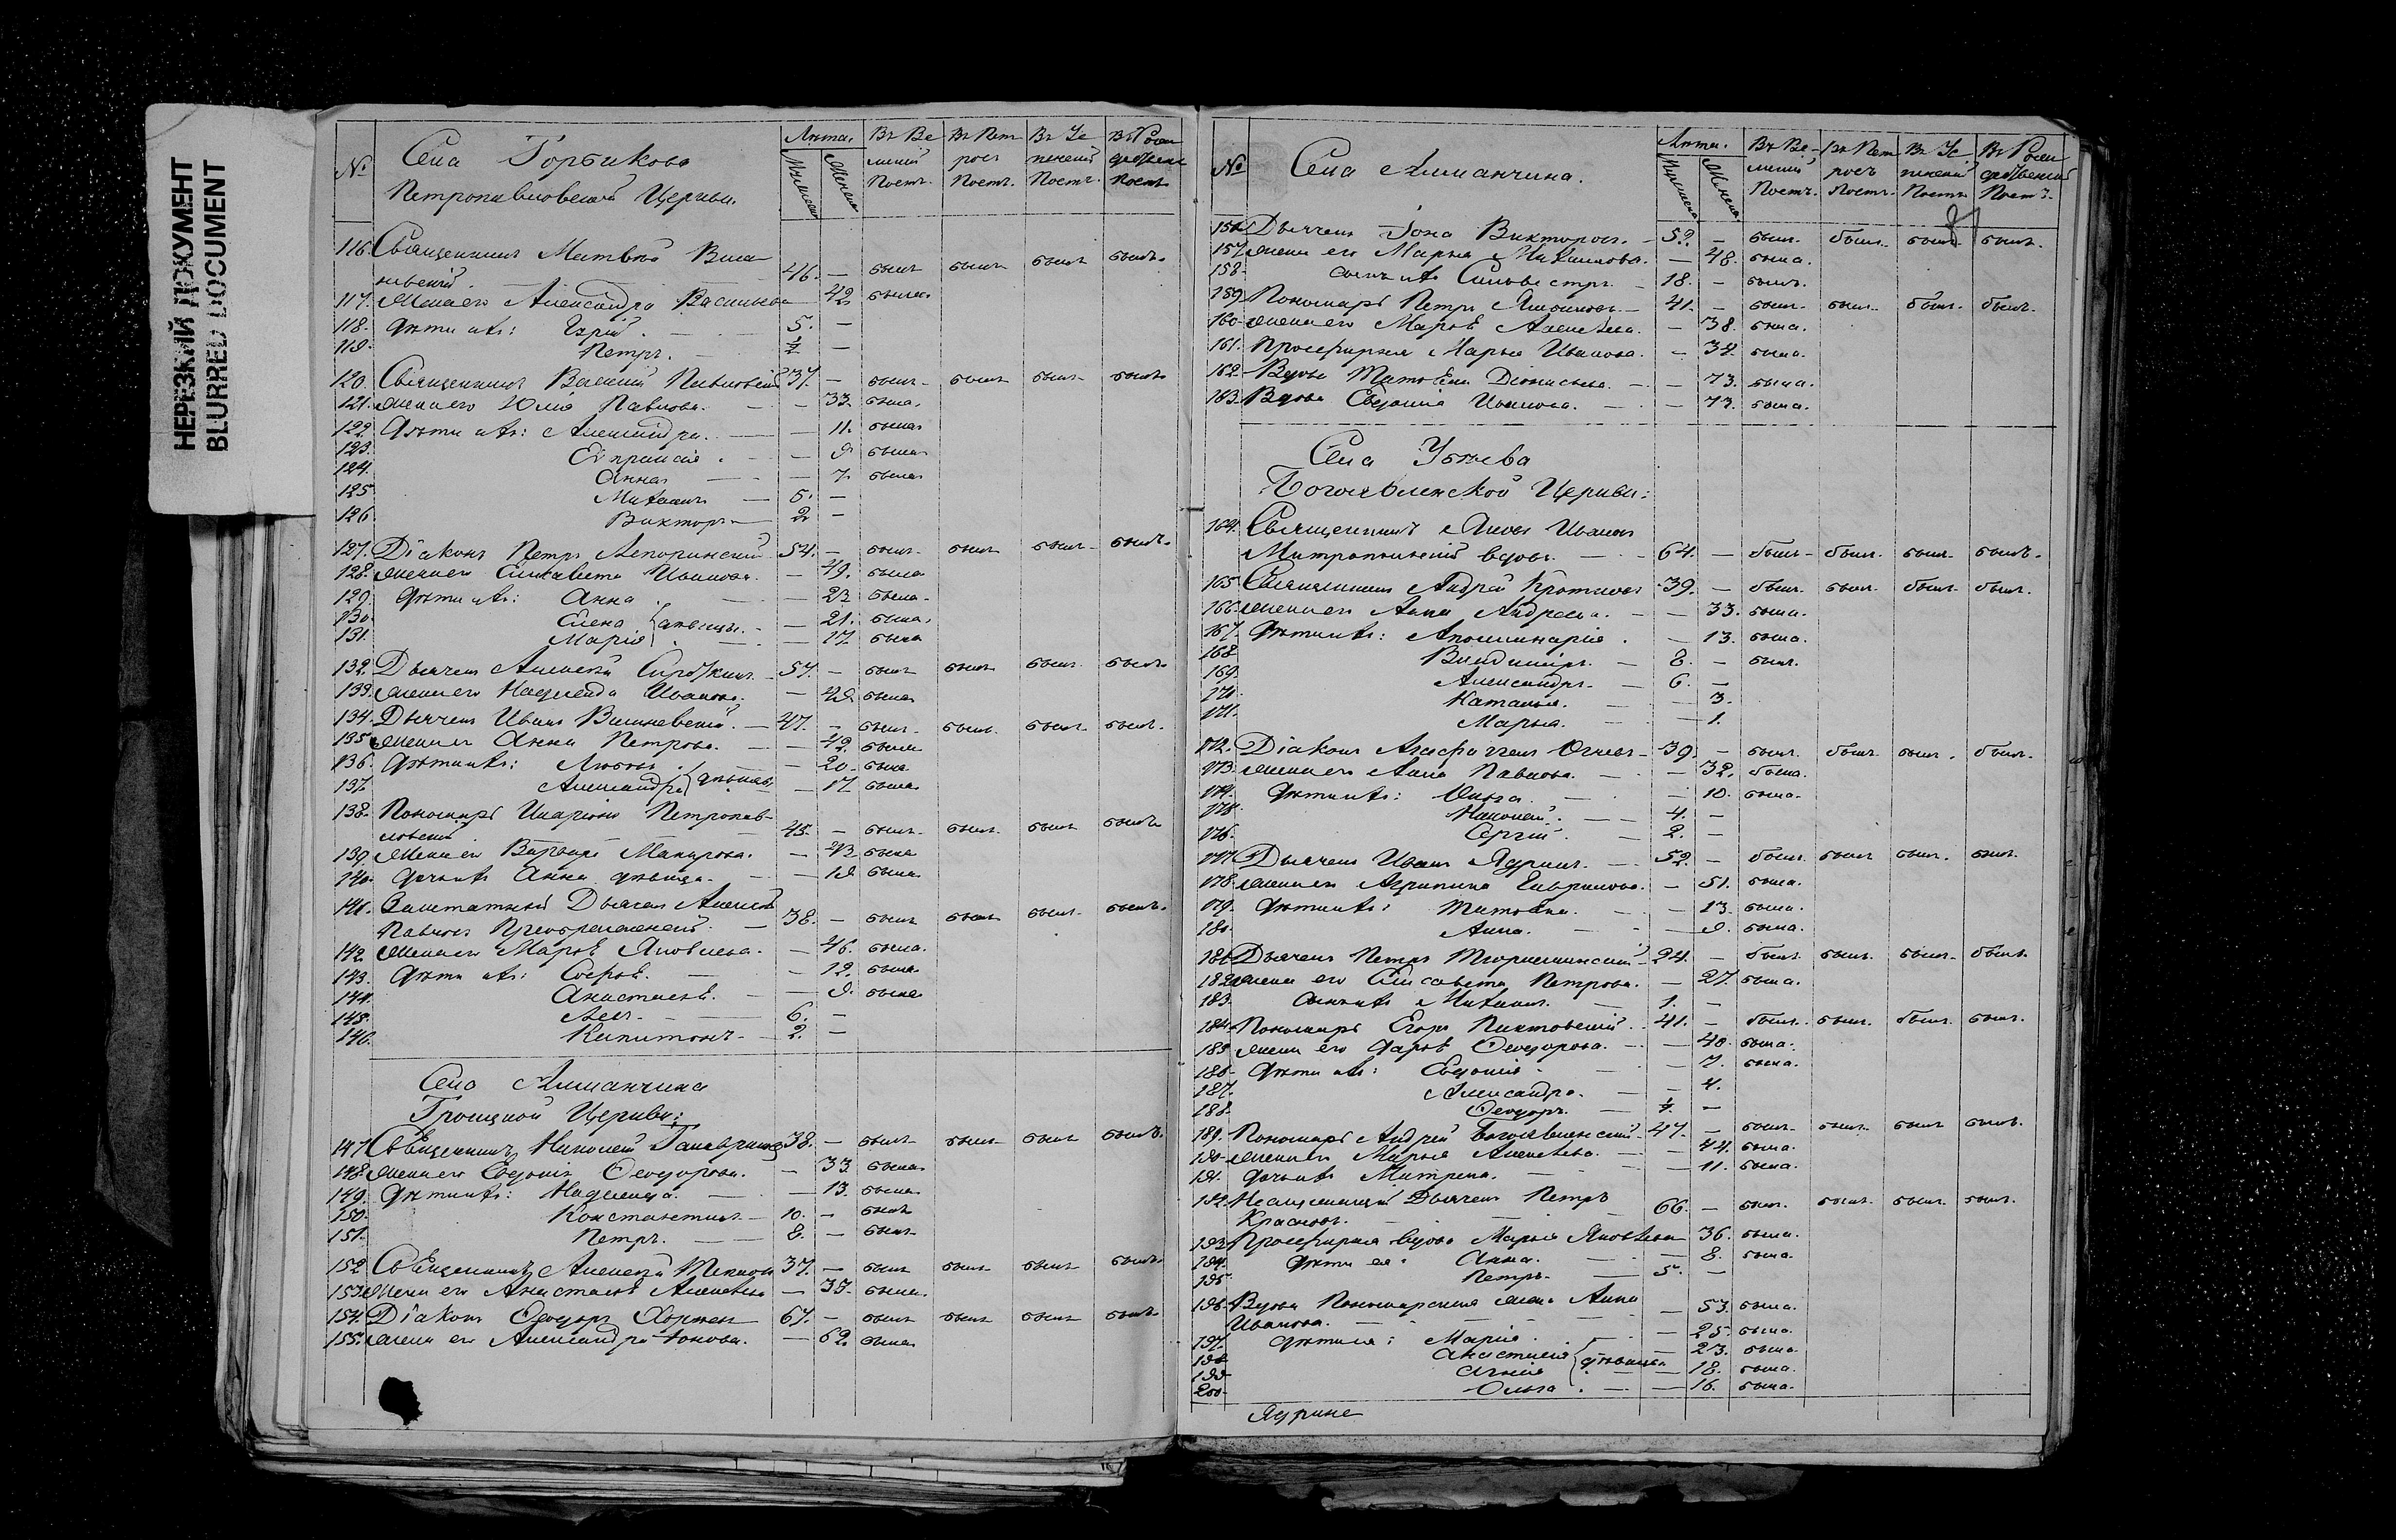 НЕРЕЗКИЙ ДОКУМЕНТ
BLURRED DOCUMENT
№ Села Горбикова Лѣта. Въ Ве Въ Пет Въ Ус Въ Рож
ликій ровъ пенскій дественс
Петропавловской Церкви. Мужеска Женска Постъ. Постъ. Постъ. Постъ
116. Священникъ Матвѣй Виш
невскій. 46. — былъ былъ былъ былъ
117. Жена его Александра Васильева 42 была
118. Дѣти ихъ: 5. —
119. Петръ. ½ —
120. Священникъ Василій Павловскій 37. — былъ былъ былъ былъ
121. Жена его Юлія Павлова. — 33. была.
122. Дѣти ихъ: Александра. — 11. была
123. Евпраксія. — 9 была
124. Анна — 7. была
125 Михаилъ — 5. —
126 Викторъ — 2 —
127. Діаконъ Петръ Лепоринскій 54. — былъ былъ былъ былъ
128. Жена его Елисавета Иванова. — 49. была
129. Дѣти ихъ: Анна — 23 была
130 Елена — 21. была
131. Марія дѣвицы. — 17 была
132. Дьячекъ Алексѣй 57. — былъ былъ былъ былъ
133. Жена его Надежда Иванова. — была
134. Дьячекъ Иванъ Вишневскій. 47. — былъ былъ былъ былъ
135. Жена его Анна Петрова. — 42. была
136. Дѣти ихъ: Любовь — 20. была
137. Александра дѣвицы — 17 была
138. Пономарь Иларіонъ Петропав-
ловскій 45. — былъ былъ былъ былъ
139. Жена его Варвара Макарова. — 43 была
140. Дочь ихъ Анна дѣвица. — 19 была
141. Заштатный Дьячекъ Алексѣй
Павловъ Преображенскій. 38. — былъ былъ былъ былъ
142. Жена его Марѳа Яковлева. — 46. была.
143. Дѣти ихъ: Софья. — 12. была
144. Анастасія. — 9. была
145. 6. —
146. Капитонъ 2. —
Села Алманчина
Троицкой Церкви:
147 Священникъ Николай 38. — былъ былъ былъ былъ
148. Жена его Евдокія Ѳеодорова. — 33 была
149. Дѣти ихъ: Надежда. — 13. была
150. Константинъ 10. — былъ
151. Петръ. 8. — былъ
152 Священникъ Алексѣй 37. — былъ былъ былъ былъ
153. Жена его Анастасія Алексѣева — 35. была.
154. Діаконъ Ѳеодоръ 67. — былъ былъ былъ былъ
155. Жена его Александра Іонова. — 62 была
№ Села Алманчина. Лѣта. Въ Ве- Въ Пет Въ Ус Въ Рож
ликій ровъ пенскій дественскій
Мужеска Женска Постъ. Постъ. Постъ Постъ.
156 Дьячекъ Іона Викторовъ. 52. — былъ. былъ. былъ былъ.
157. Жена его Марья Михайлова. — 48. была.
158. сынъ ихъ Сильвестръ. 18. — былъ.
159 Пономарь Петръ 41. — былъ. былъ. былъ. былъ.
160. Жена его Марѳа Алексѣева. — 38. была.
161. Просфирня Марья Иванова. — 34. была.
162. Вдова Татьяна Діонисьева. — 73. была.
163. Вдова Евдокія Иванова. — 73. была.
Села Убѣева
Богоявленской Церкви:
164. Священникъ Яковъ Иванов
Митропольскій вдовъ. 64. — былъ. былъ. былъ. былъ.
165. Священникъ Андрей Кротковъ 39. — былъ. былъ. былъ. былъ.
166. Жена его Анна Андреева. — 33. была.
167. Дѣти ихъ: Аполлинарія. — 13. была.
168 Владиміръ. 8. — былъ.
169. Александръ. 6. —
170. Наталья. — 3.
171. Марья. — 1.
172. Діаконъ 39. — былъ. былъ. былъ. былъ.
173. Жена его Анна Павлова. — 32. была.
174. Дѣти ихъ: Ольга. — 10. была.
175. Николай. 4. —
176. Сергій. 2. —
177. Дьячекъ Иванъ Ядринъ. 52. — былъ. былъ былъ. былъ.
178. Жена его Агрипина Гаврилова. — 51. была.
179. Дѣти ихъ: Татьяна. — 13. была.
180. Анна. — 9. была.
181 Дьячекъ Петръ 24. — былъ былъ. былъ. былъ.
182. Жена его Елисавета Петрова. — 27. была.
183. Сынъ ихъ Михаилъ. 1. —
184. Пономарь Егоръ 41. — былъ. былъ. былъ. былъ.
185 Жена его Дарья Ѳеодорова. — 40. была.
186. Дѣти ихъ: Евдокія — 7. была.
187. Александра. — 4.
188. Ѳеодоръ. —
189. Пономарь Андрей Богоявленскій 47. — былъ. былъ. былъ былъ.
190. Жена его Марья Алексѣева. — 44. была.
191. Дочь ихъ Матрена. — 11. была.
192. Дьячекъ Петръ
Красновъ. 66. — былъ. былъ былъ. былъ.
193 Просфирня вдова Марья Яковлева — 36. была.
194. Дѣти ея: Анна. — 8. была.
195. Петръ. 5. —
196. Вдова Пономарская жена Анна
Иванова. — 53. была.
197. Дѣти ея: Марія. — 25. была.
198 Анастасія дѣвицы — 23. была.
199 Агнія — 18. была.
200 Ольга. — 16. была.
Ядрине